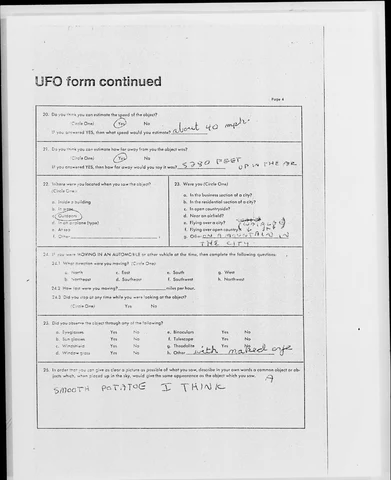 UFO form continued
Page 4
20. Do you think you can estimate the speed of the object?
(Circle One) Yes No
If you answered YES, then what speed would you estimate? about 40 mph.
21. Do you think you can estimate how far away from you the object was?
(Circle One) Yes No
If you answered YES, then how far away would you say it was? 5280 FEET UP IN THE AIR
22. Where were you located when you saw the object?
(Circle One)
a. Inside a building
b. In a car
c. Outdoors
d. In an airplane (type)
e. At sea
f. Other
23. Were you (Circle One)
a. In the business section of a city?
b. In the residential section of a city?
c. In open countryside?
d. Near an airfield?
e. Flying over a city?
f. Flying over open country?
g. Other ON A MOUNTAIN IN
THE CITY
24. If you were MOVING IN AN AUTOMOBILE or other vehicle at the time, then complete the following questions.
24.1 What direction were you moving? (Circle One)
a. North c. East e. South g. West
b. Northeast d. Southeast f. Southwest h. Northwest
24.2 How fast were you moving? miles per hour.
24.3 Did you stop at any time while you were looking at the object?
(Circle One) Yes No
25. Did you observe the object through any of the following?
a. Eyeglasses Yes No e. Binoculars Yes No
b. Sun glasses Yes No f. Telescope Yes No
c. Windshield Yes No g. Theodolite Yes No
d. Window glass Yes No h. Other with naked eye
26. In order that you can give as clear a picture as possible of what you saw, describe in your own words a common object or ob-
jects which, when placed up in the sky, would give the same appearance as the object which you saw. A
SMOOTH POTATOE I THINK